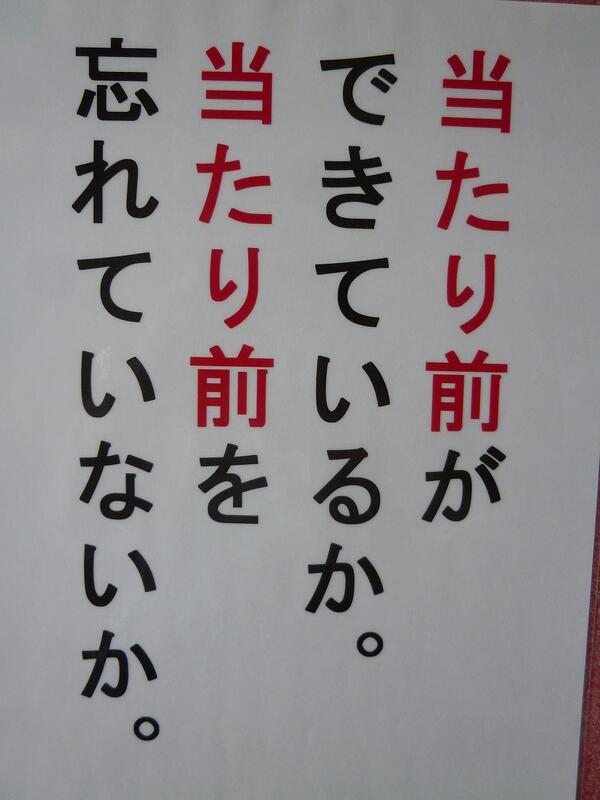 当たり前が
できているか。
当たり前を
忘れていないか。